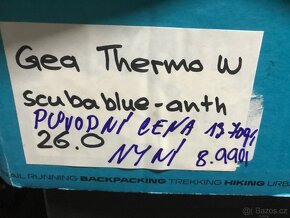 Gea Thermo W
scubablue-anth
PŮVODNÍ CENA 13709,-
26.0
NYNÍ 8.990,-
AIL RUNNING BACKPACKING TREKKING HIKING URB